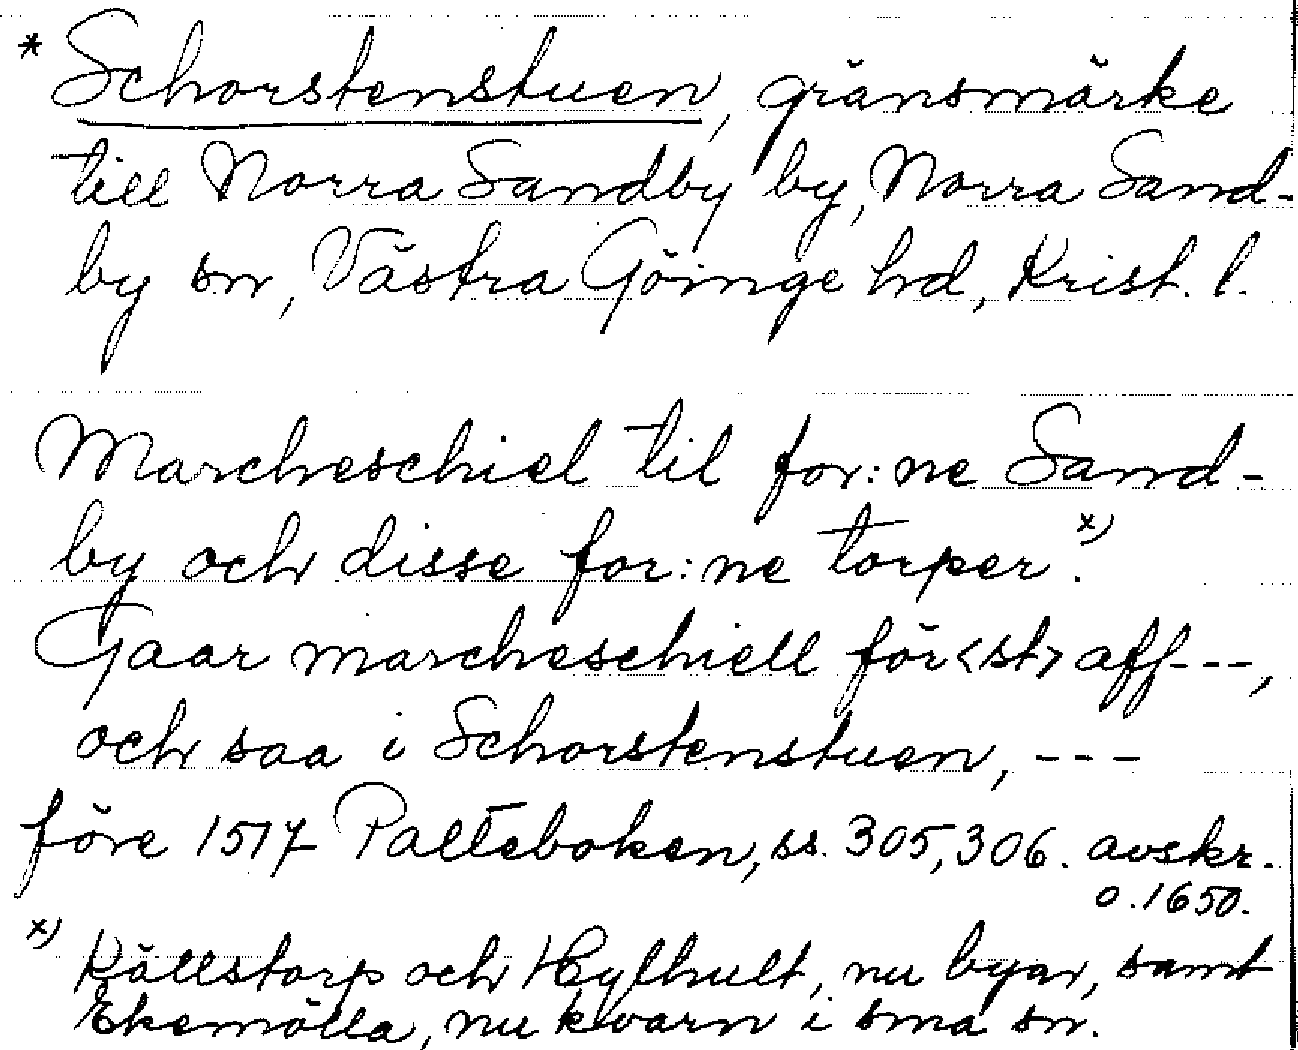 * Schorstenstuen, gränsmärke
till Norra Sandby by, Norra Sand-
by sn, Västra Göinge hd, Krist. l.
Marcheschiel til for:ne Sand-
by och disse for:ne torper. x)
Gaar marcheschiell för<st> aff---,
och saa i Schorstenstuen, ---
före 1517 Palteboken, ss. 305, 306. avskr.
o. 1650.
x) Källstorp och Hylhult, nu byar, samt
Ekemölla, nu kvarn i sma sn.